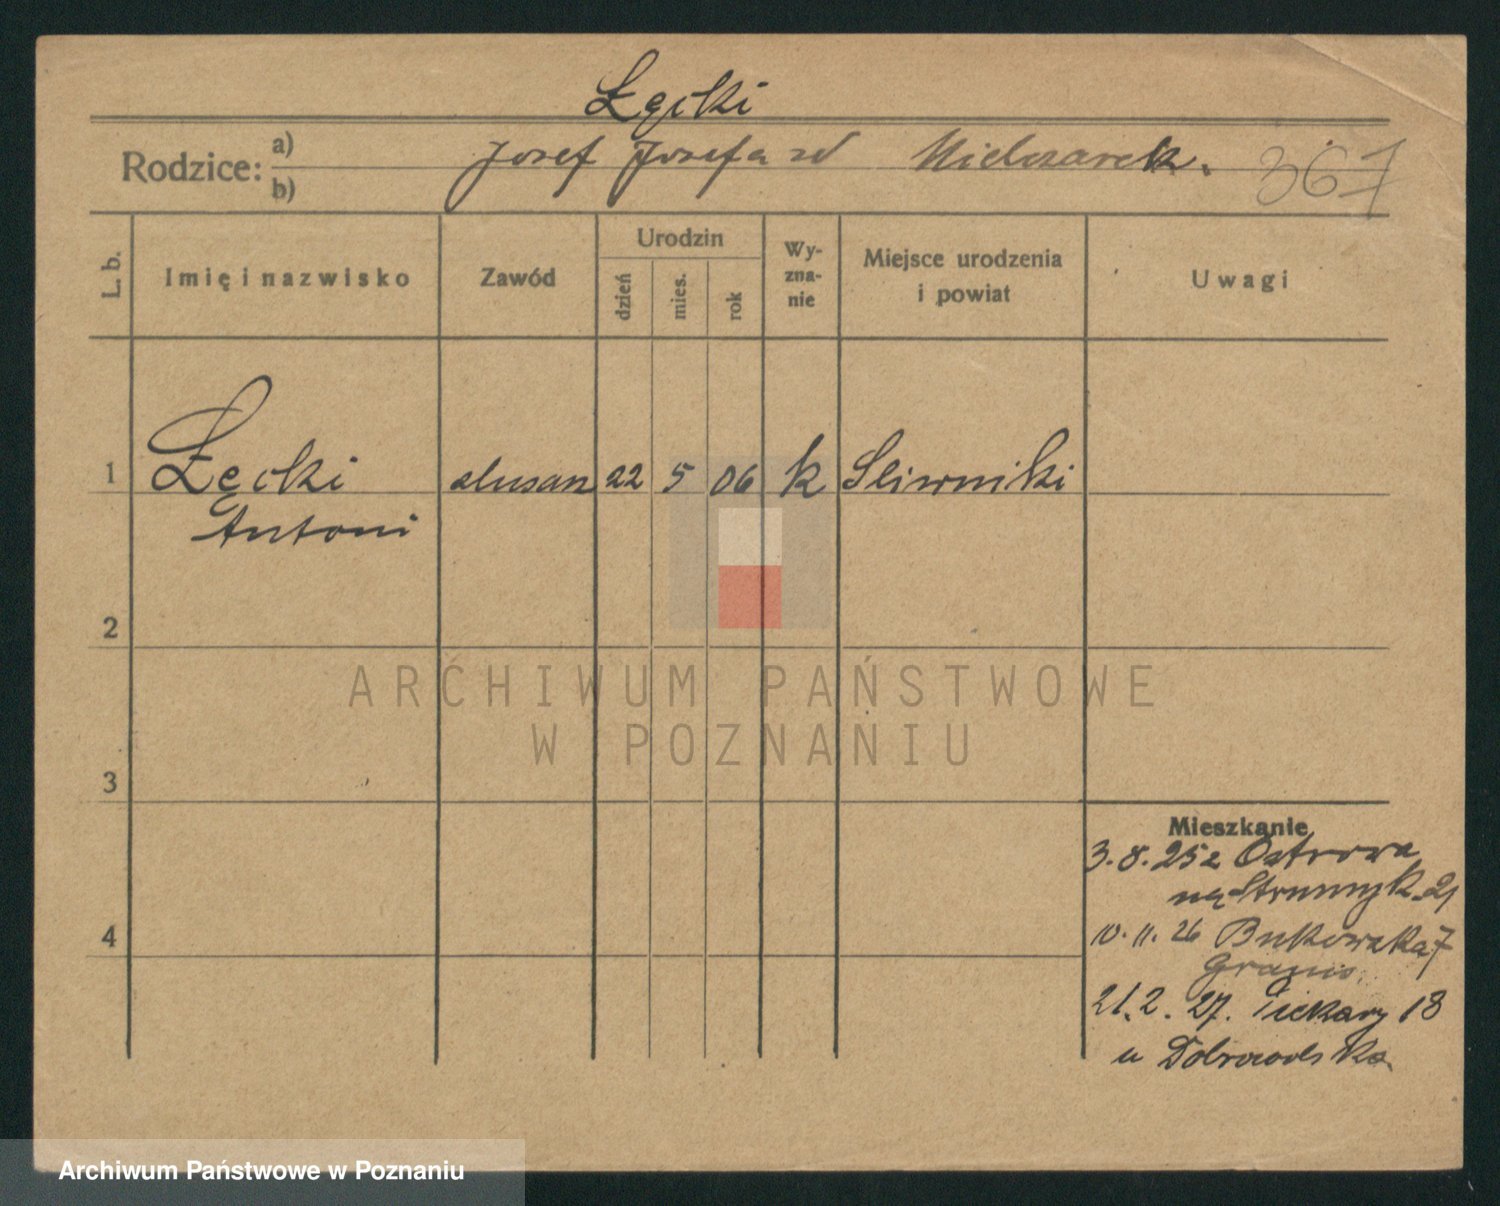 Łęcki
Rodzice: a) b) Josef Jozefa zd Mielcarek. 367
L. b. Imię i nazwisko Zawód Urodzin dzień mies. rok Wy-zna-nie Miejsce urodzenia i powiat Uwagi
1 Łęcki ślusarz 22 5 06 k Sliwniki
Antoni
2
ARCHIWUM PAŃSTWOWE
W POZNANIU
3
Mieszkanie
3.8.25 z Ostrowa
21
4
10.11.26 Bukowska 7
21.2.27. Piekary 18
u Dobrowolska
Archiwum Państwowe w Poznaniu